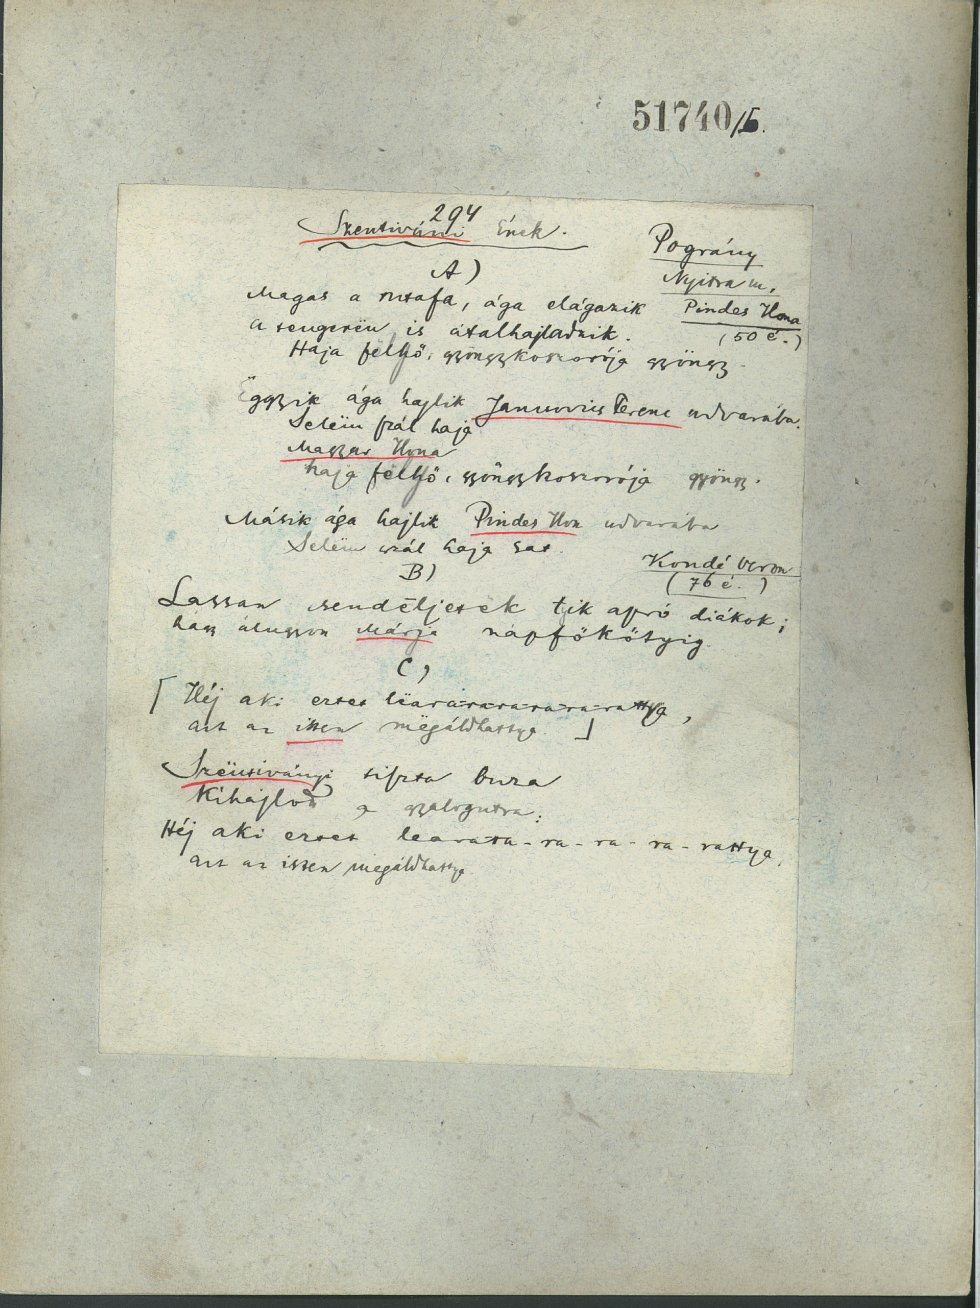 51740/5.
294
Szentiváni Ének.
Pográny
Nyitra m.
Pindes Ilona
(50 é.)
A)
Magas a rutafa, ága elágazik
a tengerën is átalhajladzik.
Haja fëlhő, gyöngykoszorója gyöngy.
Ëggyik ága hajlik Jancsovics Ferenc udvarába.
Selëm szál haja
Magyar Ilona
haja fëlhő, gyöngykoszorója gyöngy.
Másik ága hajlik Pindes Ilon udvarába
Selëm szál haja sat.
Kondé Veron
(76 é.)
B)
Lassan csendëljetëk tik apró diákok;
hágy álugyon Márja napfőkötyig.
C)
[Héj aki eztet lëara-ra-ra-ra-ra-rattya,
azt az issen mëgáldhattya.]
Szëntiványi tiszta buza
Kihajlod a gyalogutra;
Héj aki eztet learata-ra-ra-ra-rattya,
azt az issen mëgáldhattya.